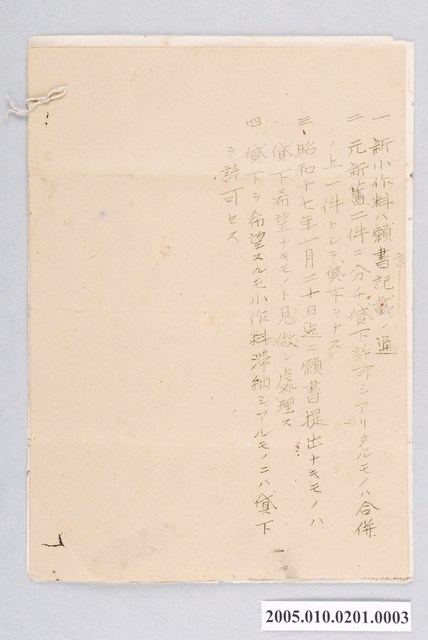 一 新小作料ハ願書記載ノ通
二 元新舊二件ニ分チ貸下許可シアリタルモノハ合併
ノ上一件トシテ貸下ヲナス
三、昭和十七年一月二十日迄ニ願書提出ナキモノハ
貸下希望ナキモノト見做シ處理ス
四 貸下ヲ希望スルモ小作料滯納シアルモノニハ貸下
ヲ許可セス
2005.010.0201.0003